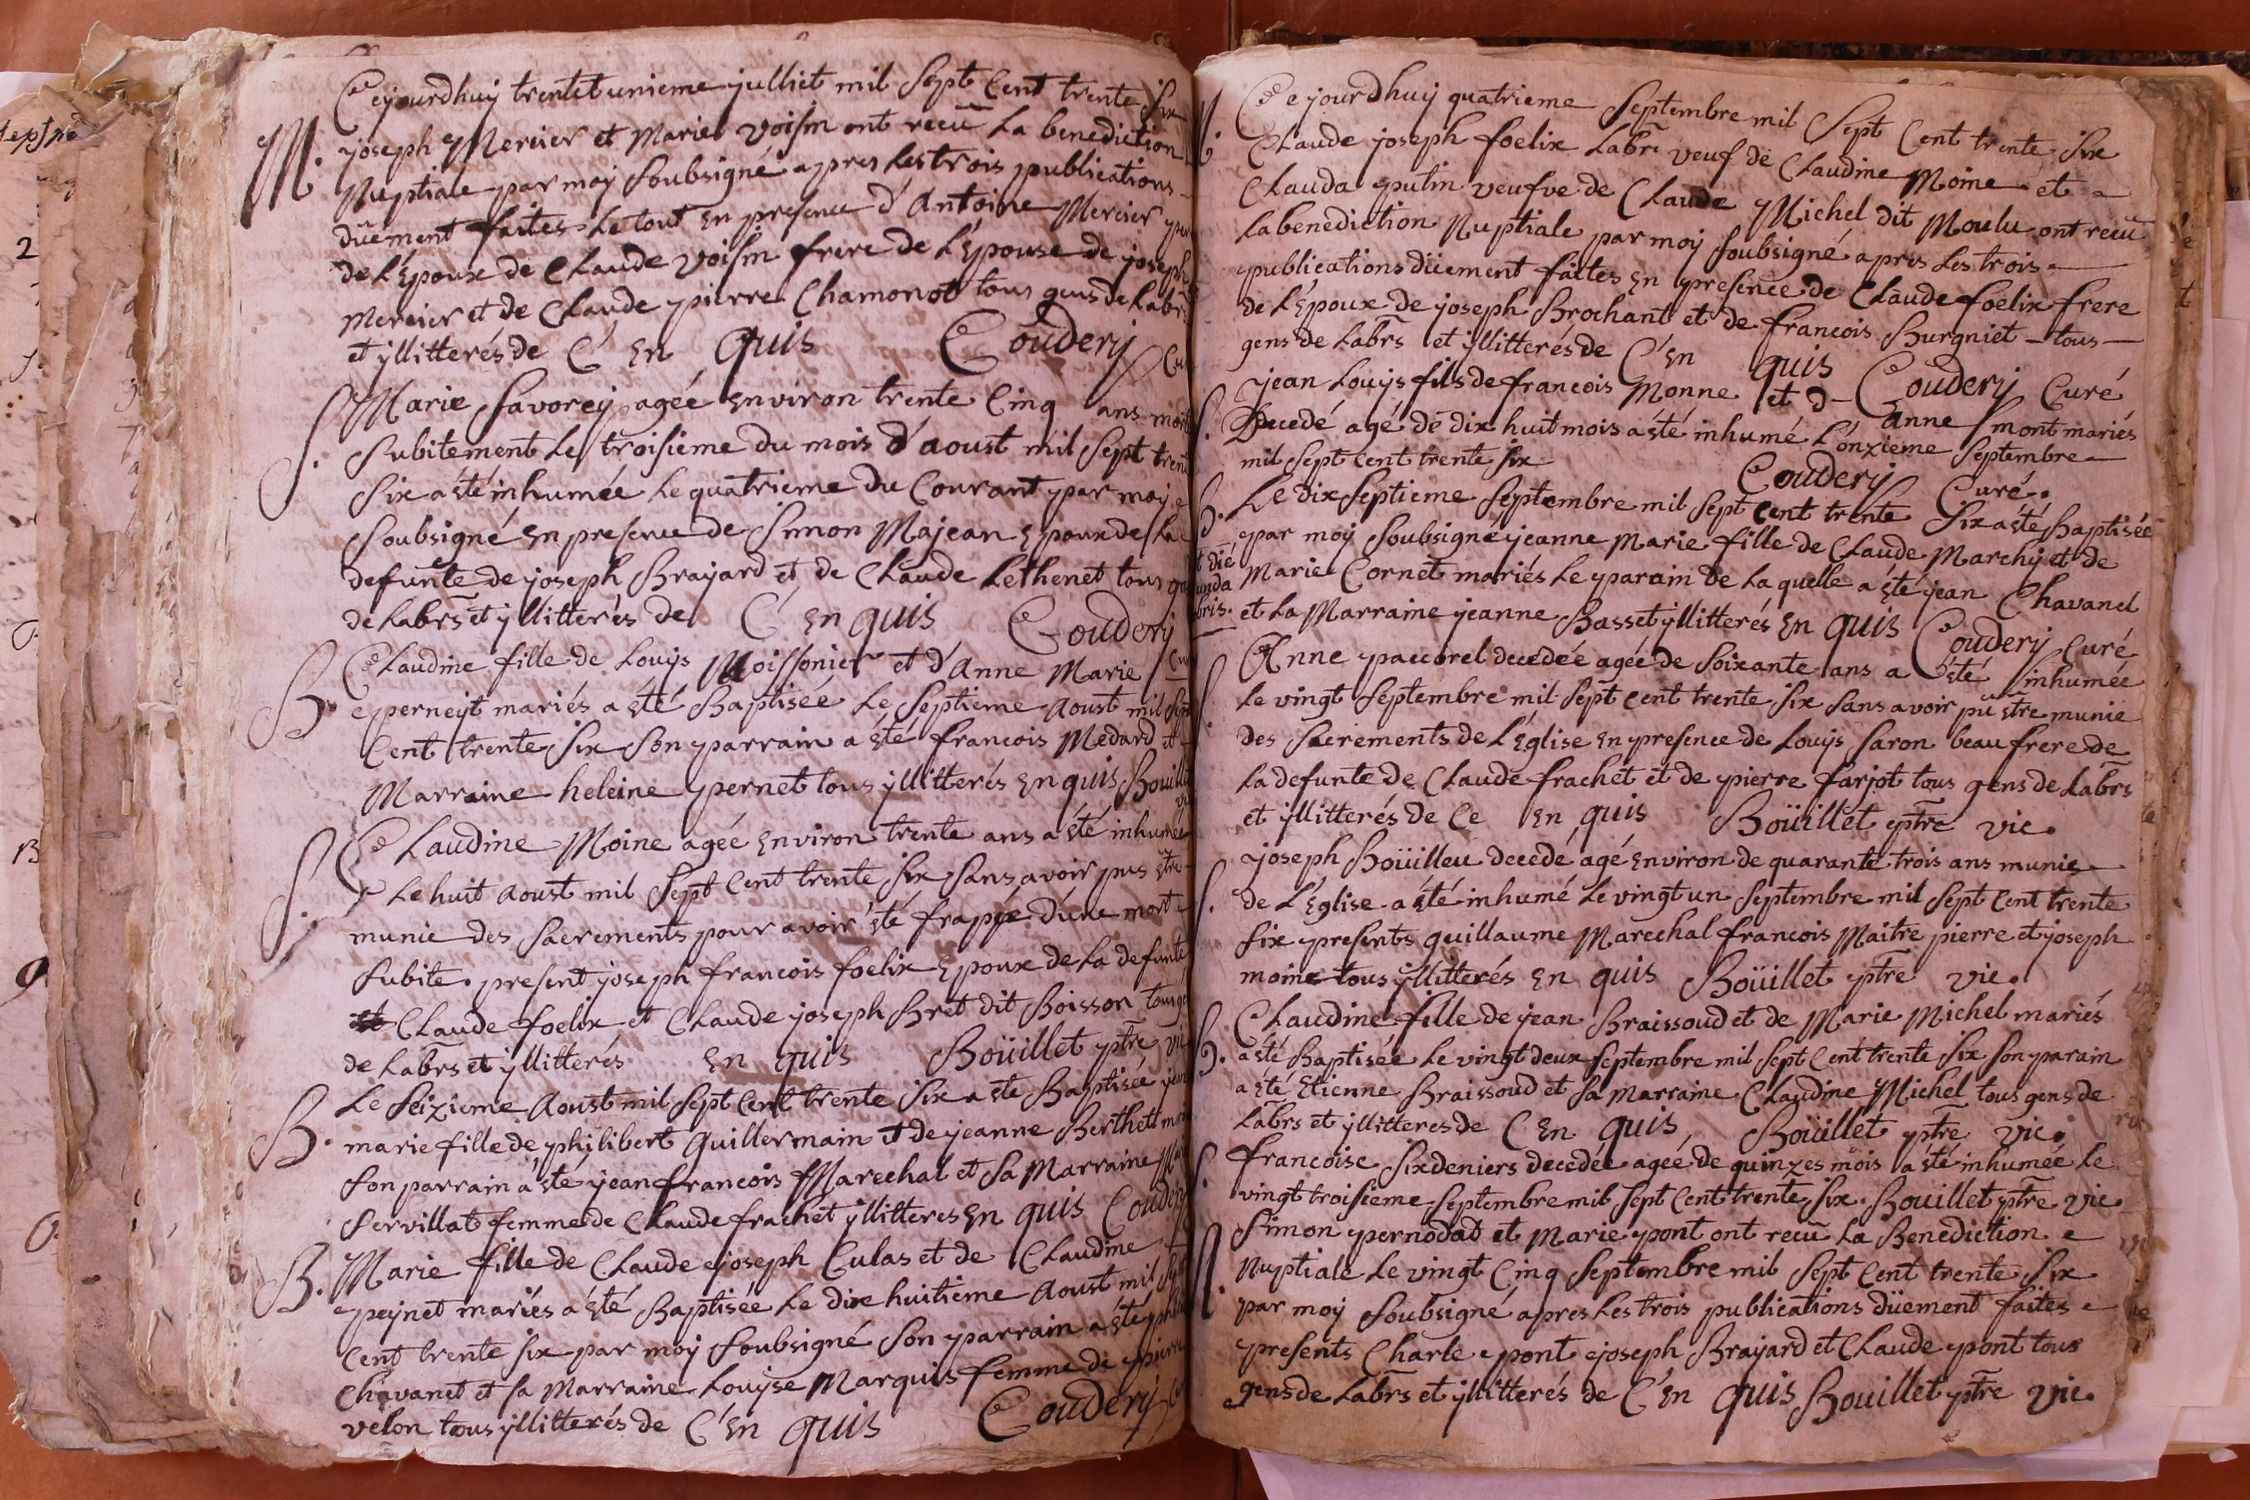 Ceyourdhuy trentet unieme julliet mil sept Cent trente six
M. joseph Mercier et Marie voisin ont recû La benediction
Nuptiale par moy soubsigné apres les trois publications
düement faites Le tout En presence d'Antoine Mercier
de L'Epoux de Claude voisin frere de L'Epouse de joseph
Mercier et de Claude pierre Chamonot tous gens de Labrs
et yllitterés de C'En quis Coudery
S. Marie Savorey agée Environ trente Cinq ans
Subitement Le troisieme du mois d'aoust mil sept trente
Six a été inhumée Le quatrieme du Courant par moy
Soubsigné En presence de Simon Majean Epoux de La
defunte de joseph Brayard et de Claude Lethenet tous
de Labrs et yllitterés de C'En quis Coudery
B. Claudine fille de Louys Moissonier et d'Anne Marie
perneyt mariés a été Baptisée Le Septieme Aoust mil Sept
Cent trente Six Son parrain a été francois Medard et
Marraine heleine pernet tous yllitterés En quis
S. Claudine Moine agée Environ trente ans a été inhumée
Le huit Aoust mil Sept Cent trente Six Sans avoir pus être
munie des Sacrements pour avoir été frappée d'une mort
Subite. present joseph francois foelix Epoux de La defunte
Claude foelix et Claude joseph Bret dit Boisson
de Labrs et yllitterés En quis Boüillet ptre vic
B. Le Seizieme Aoust mil Sept Cent trente Six a ete Baptisée
marie fille de philibert Guillermain et de jeanne Berthett
Son parrain a été jean francois Marechal et Sa Marraine
Servillat femme de Claude frachet yllitteres En quis Coudery
B. Marie fille de Claude joseph Culas et de Claudine
peynet mariés a été Baptisée Le dix huitieme Aoust mil
Cent trente six par moy Soubsigné Son parrain a été
Chavanet et sa Marraine Louyse Marquis femme de pierre
velon tous yllitterés de C'En quis Coudery
Ce jourdhuy quatrieme Septembre mil Sept Cent trente six
Claude joseph foelix Labr veuf de Claudine Moine et
Clauda putin veufve de Claude Michel dit Moulu ont recû
La benediction Nuptiale par moy Soubsigné apres Les trois
publications düement faites En presence de Claude foelix frere
de L'Epoux de joseph Brochant et de francois Burgniet tous
gens de Labrs et yllitterés de C'En quis Coudery Curé
S. jean Louys fils de francois Monne et d'Anne Smont mariés
Decedé agé de dix huit mois a été inhumé L'onzieme Septembre
mil Sept Cent trente Six Coudery Curé.
B. Le Dix Septieme Septembre mil Sept Cent trente Six a été Baptisée
par moy Soubsigné jeanne Marie fille de Claude Marchy et de
Marie Cornet mariés Le parain de La quelle a été jean Chavanel
et La Marraine jeanne Basset yllitterés En quis Coudery Curé
S. Anne paccorel decedée agée de Soixante ans a été inhumée
Le vingt Septembre mil Sept Cent trente Six Sans avoir pû être munie
des Sacrements de L'Eglise En presence de Louys Saron beau frere de
La defunte de Claude frachet et de pierre farjot tous gens de Labrs
et yllitterés de Ce En quis Boüillet ptre vic.
S. joseph Boüilleu decedé agé Environ de quarante trois ans munie
de L'Eglise a été inhumé Le vingt un Septembre mil Sept Cent trente
Six presents guillaume Marechal francois Maitre pierre et joseph
moine tous yllitterés En quis Boüillet ptre vic.
B. Claudine fille de jean Braissoud et de Marie Michel mariés
a été Baptisée Le vingt deux Septembre mil Sept Cent trente Six Son parain
a été Etienne Braissoud et Sa Marraine Claudine Michel tous gens de
Labrs et yllitteres de C'En quis Boüillet ptre vic.
S. francoise Sixdeniers decedée agée de quinzes mois a été inhumée Le
vingt troisieme Septembre mil Sept Cent trente Six. Bouillet ptre vic
Simon pernodat et Marie pont ont recû La Benediction
Nuptiale Le vingt Cinq Septembre mil Sept Cent trente Six
par moy Soubsigné apres Les trois publications düement faites
presents Charle pont joseph Brayard et Claude pont tous
gens de Labrs et yllitterés de C'En quis Bouillet ptre vic.